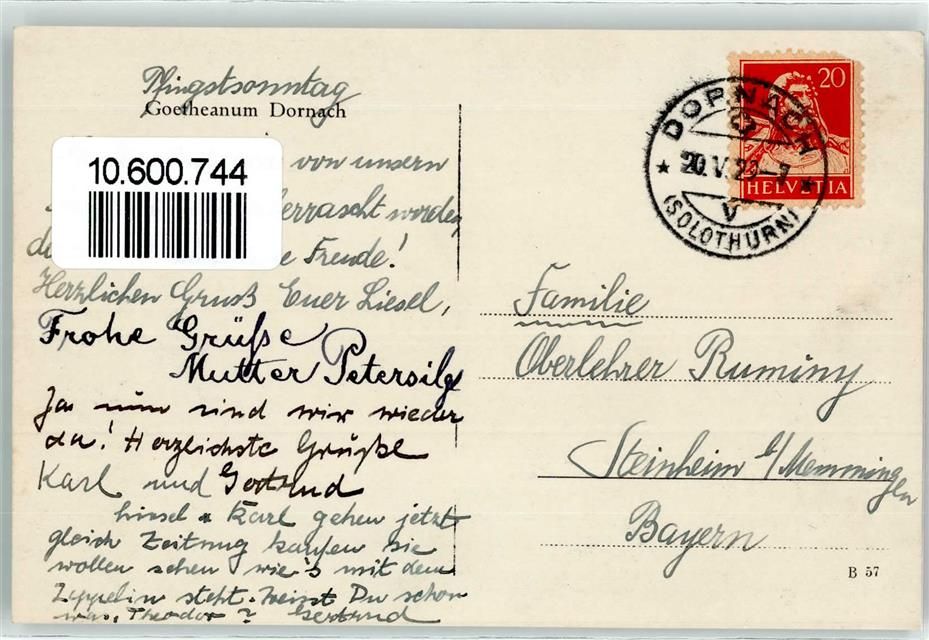 Pfingstsonntag
Goetheanum Dornach
10.600.744
von unsern
überrascht worden,
Freude!
Herzlichen Gruß Euer Liesel,
Frohe Grüße
Mutter Petersilge
Ja nun sind wir wieder
da! Herzlichste Grüße
Karl und Gertrud
Liesel u Karl gehen jetzt
gleich Zeitung kaufen sie
wollen sehen wie's mit dem
Zeppelin steht. Weisst Du schon
was, Theodor? Gertrud
20
HELVETIA
DORNACH
20.V.
V
(SOLOTHURN)
Familie
Oberlehrer Ruminy
Steinheim b/Memmingen
Bayern
B 57